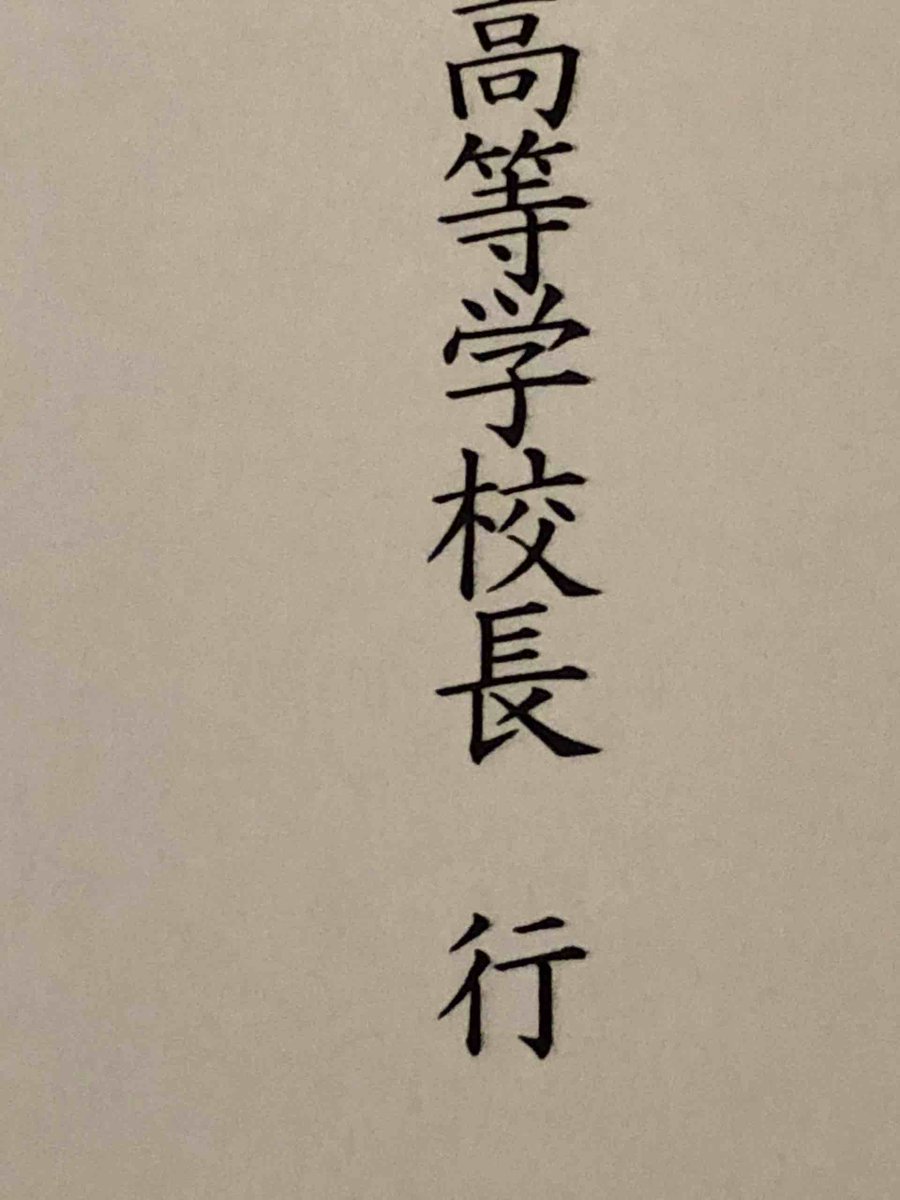 高等学校長 行